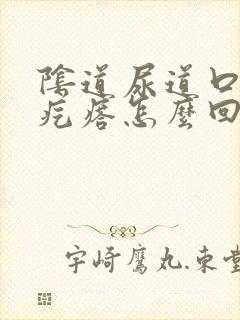 陰道尿道口
疙瘩怎麼回
宇崎鷹丸.束堂